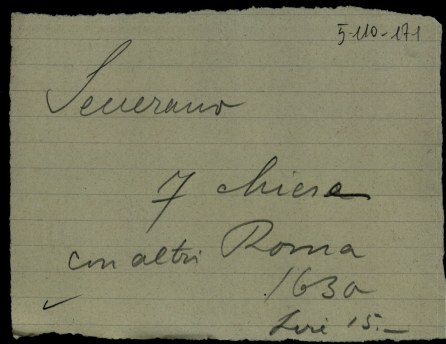 5-110-171
Severano
7 chiese
con altri Roma
1630
Lire 15.—